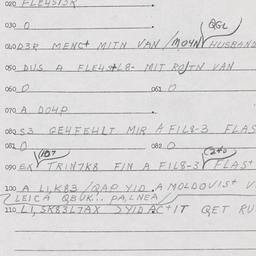 020 FLE4SI3R
030 0
QGL
040 D3R MENC+ MITN VAN /MO4N HUSBAND
050 DUS A FLE4S+L8- MIT ROJTN VAN
060 0 061 0
070 A DO4P
080 S3 GE4FE4LT MIR A FIL8-3 FLAS
081 0 082 0
090 EX TRIN7K8 FIN A FIL8-3 FLAS+
100 A LI,K83 /QAP YID. A MOLDOVIS+
LEICA QBUK.. PA,LNEA
110 LI,SK83L7AX SYID AC+IT QET RU